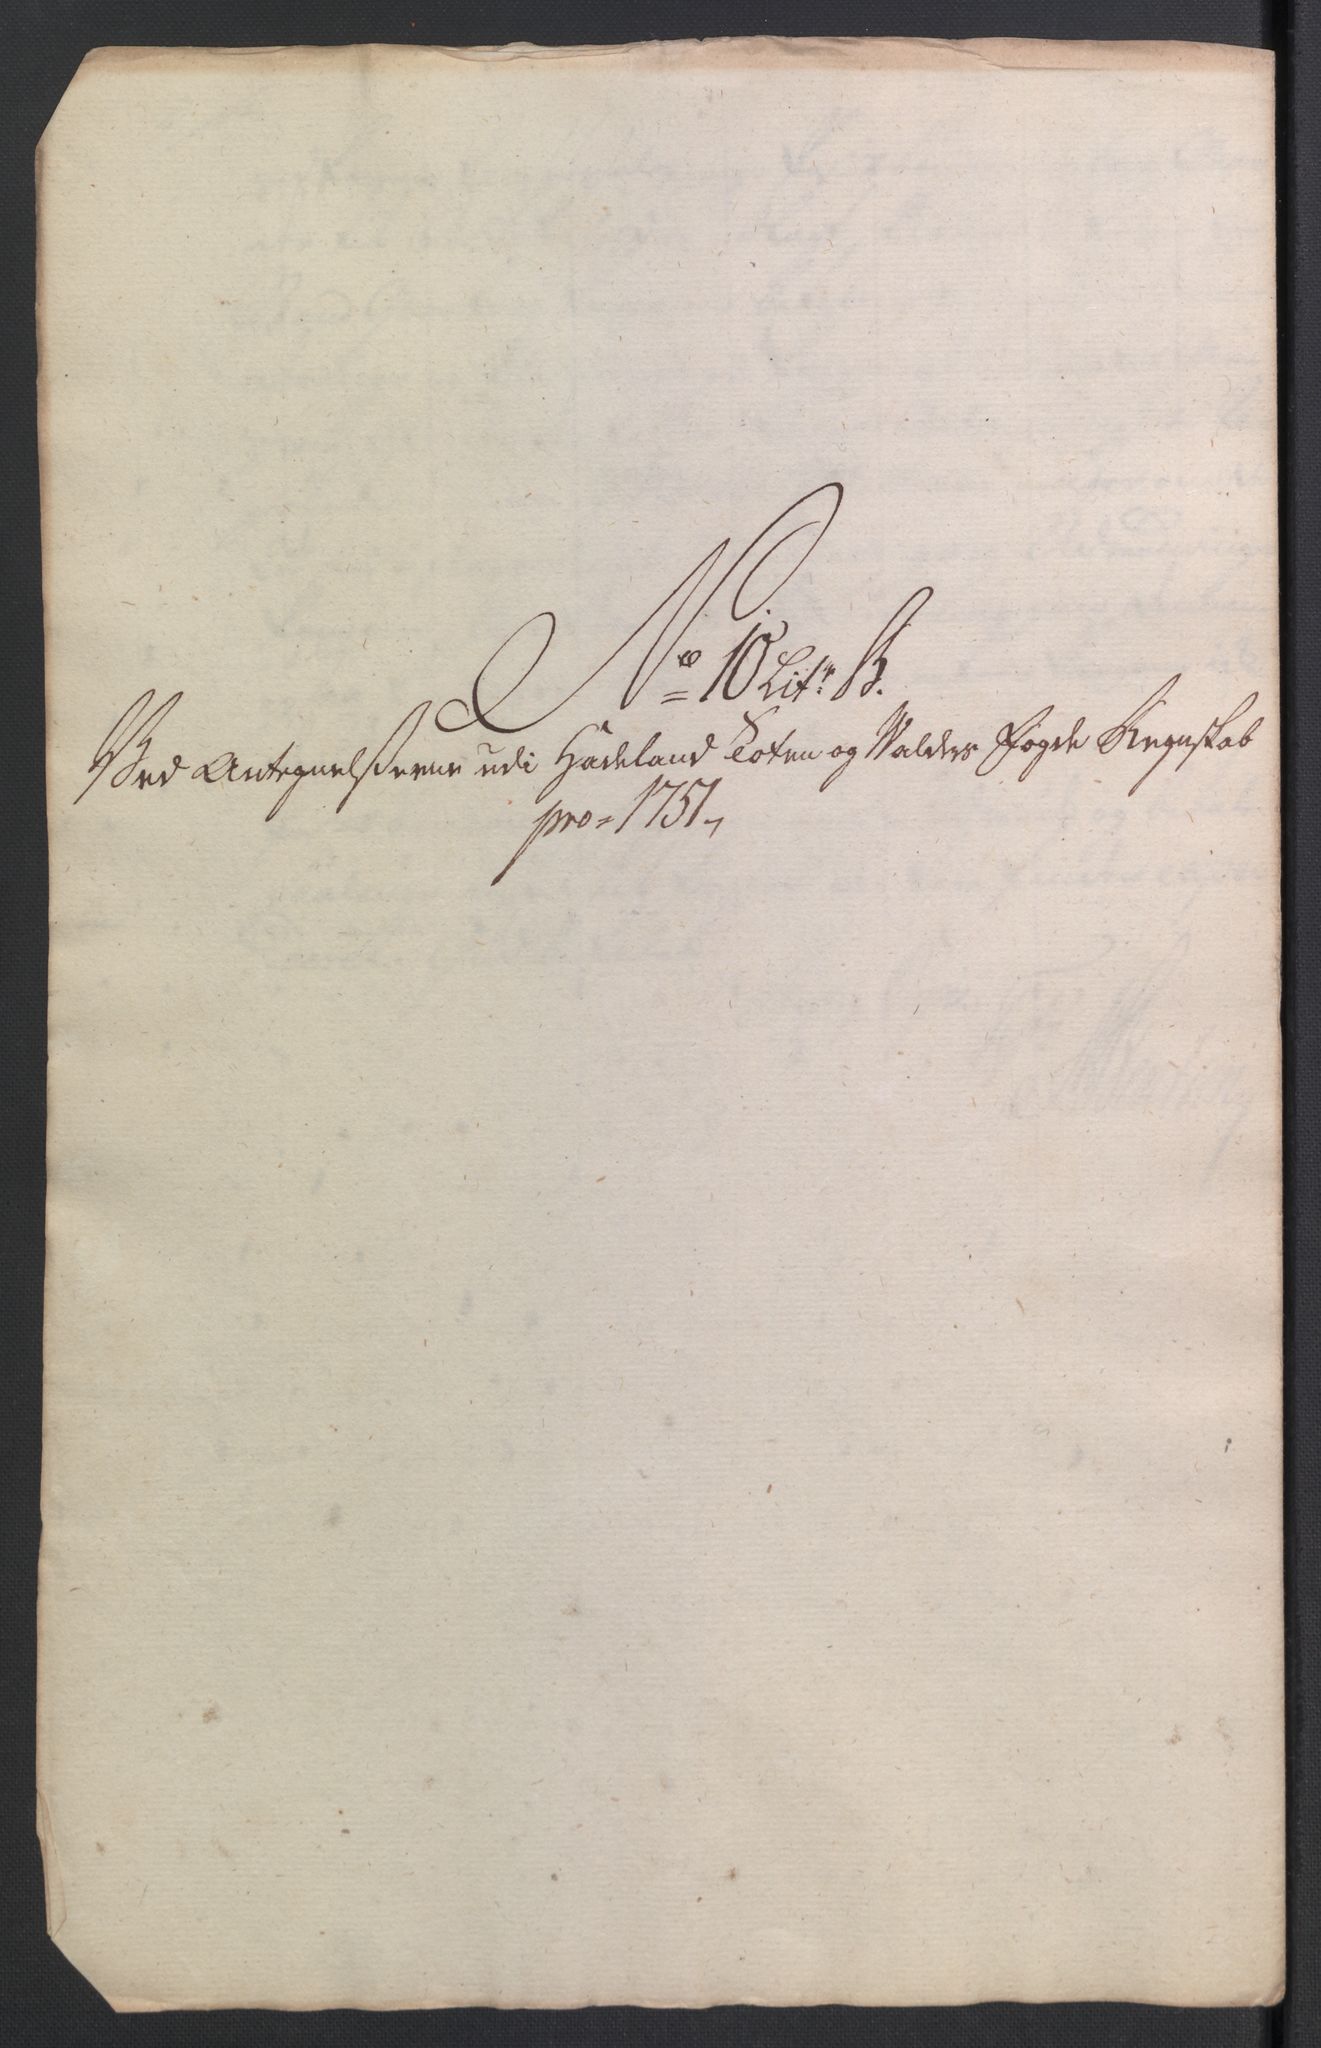 No 10 Litr: B.
Ved Antegnelserne udi Hadeland Toten og Valders Fogde Regnskab
pro = 1751,